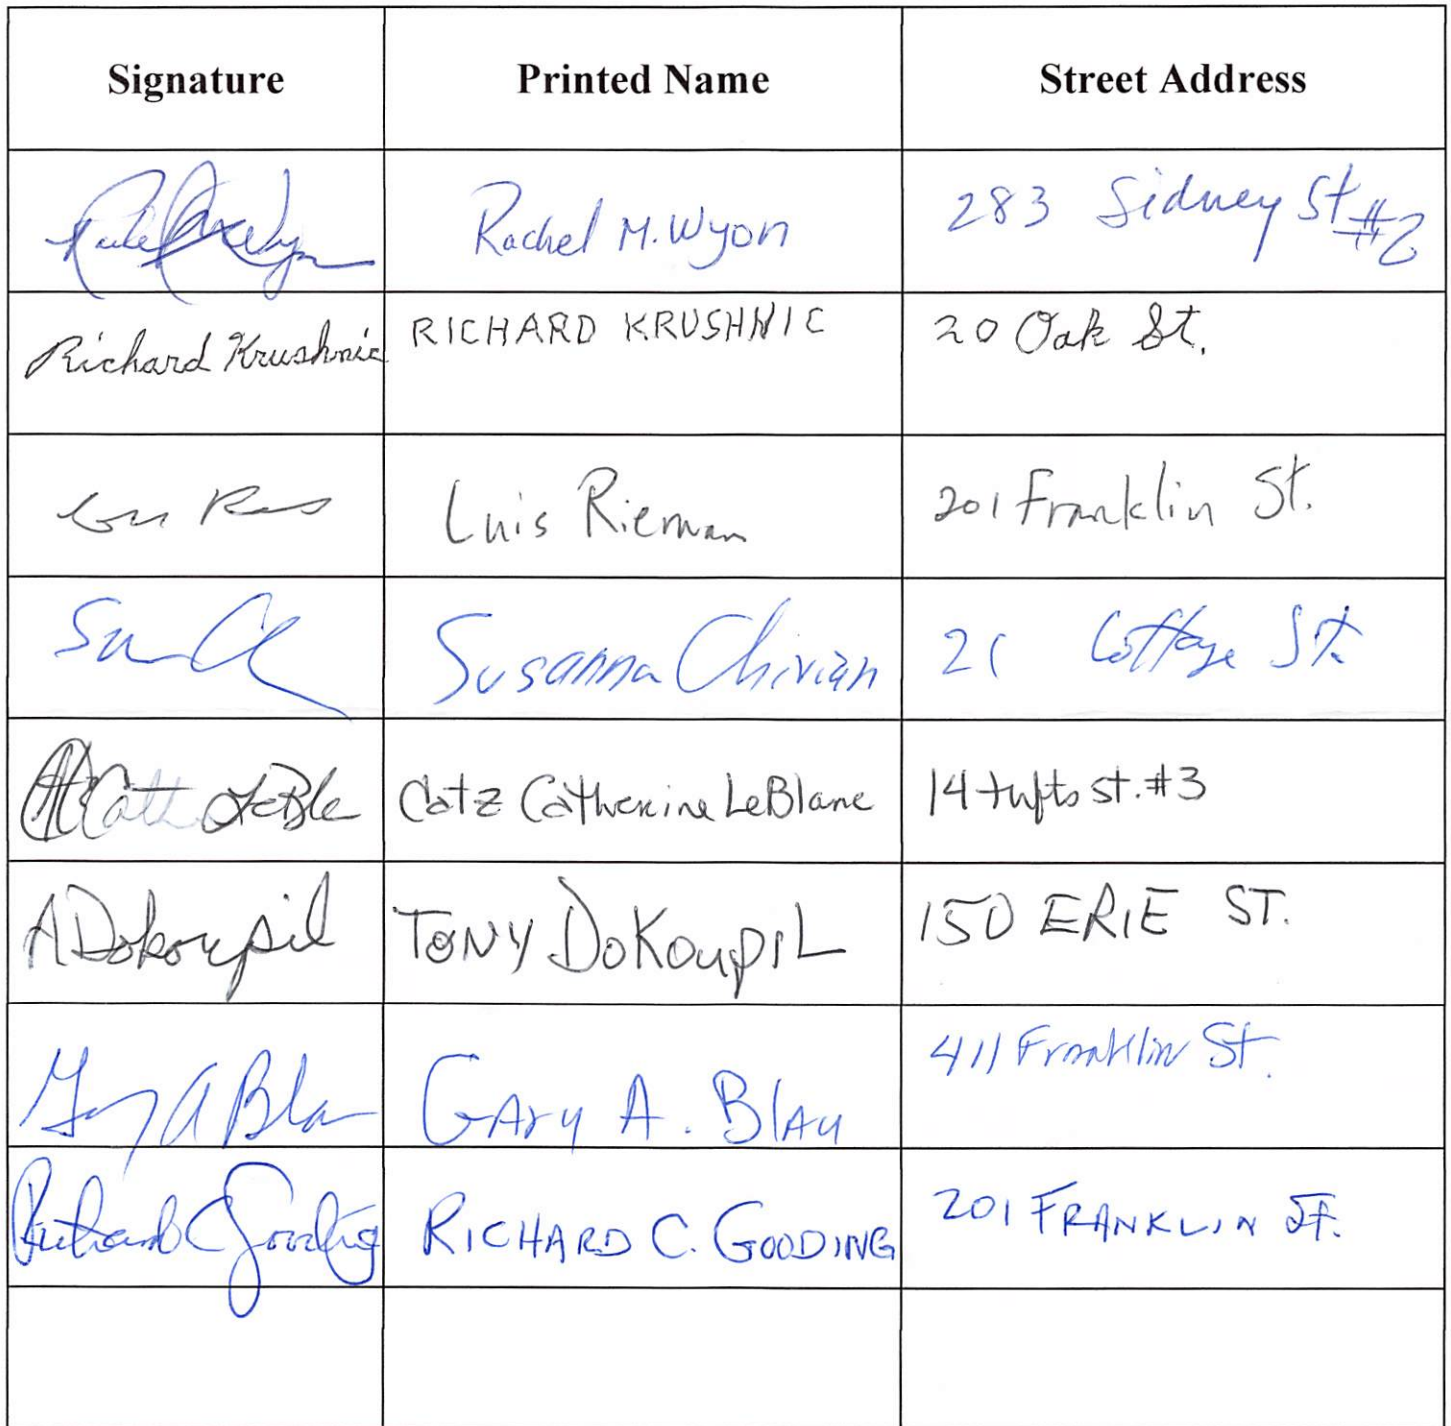 Signature Printed Name Street Address
Rachel M. Wyon 283 Sidney St #2
Richard Krushnic RICHARD KRUSHNIC 20 Oak St.
Luis Rieman 201 Franklin St.
Susanna Chivian 21 Cottage St.
Catz Catherine LeBlanc 14 tufts st. #3
A Dokoupil TONY DOKOUPIL 150 ERIE ST.
Gary A Blau GAry A. BlAu 411 Franklin St.
Richard C Gooding RICHARD C. GOODING 201 FRANKLIN ST.